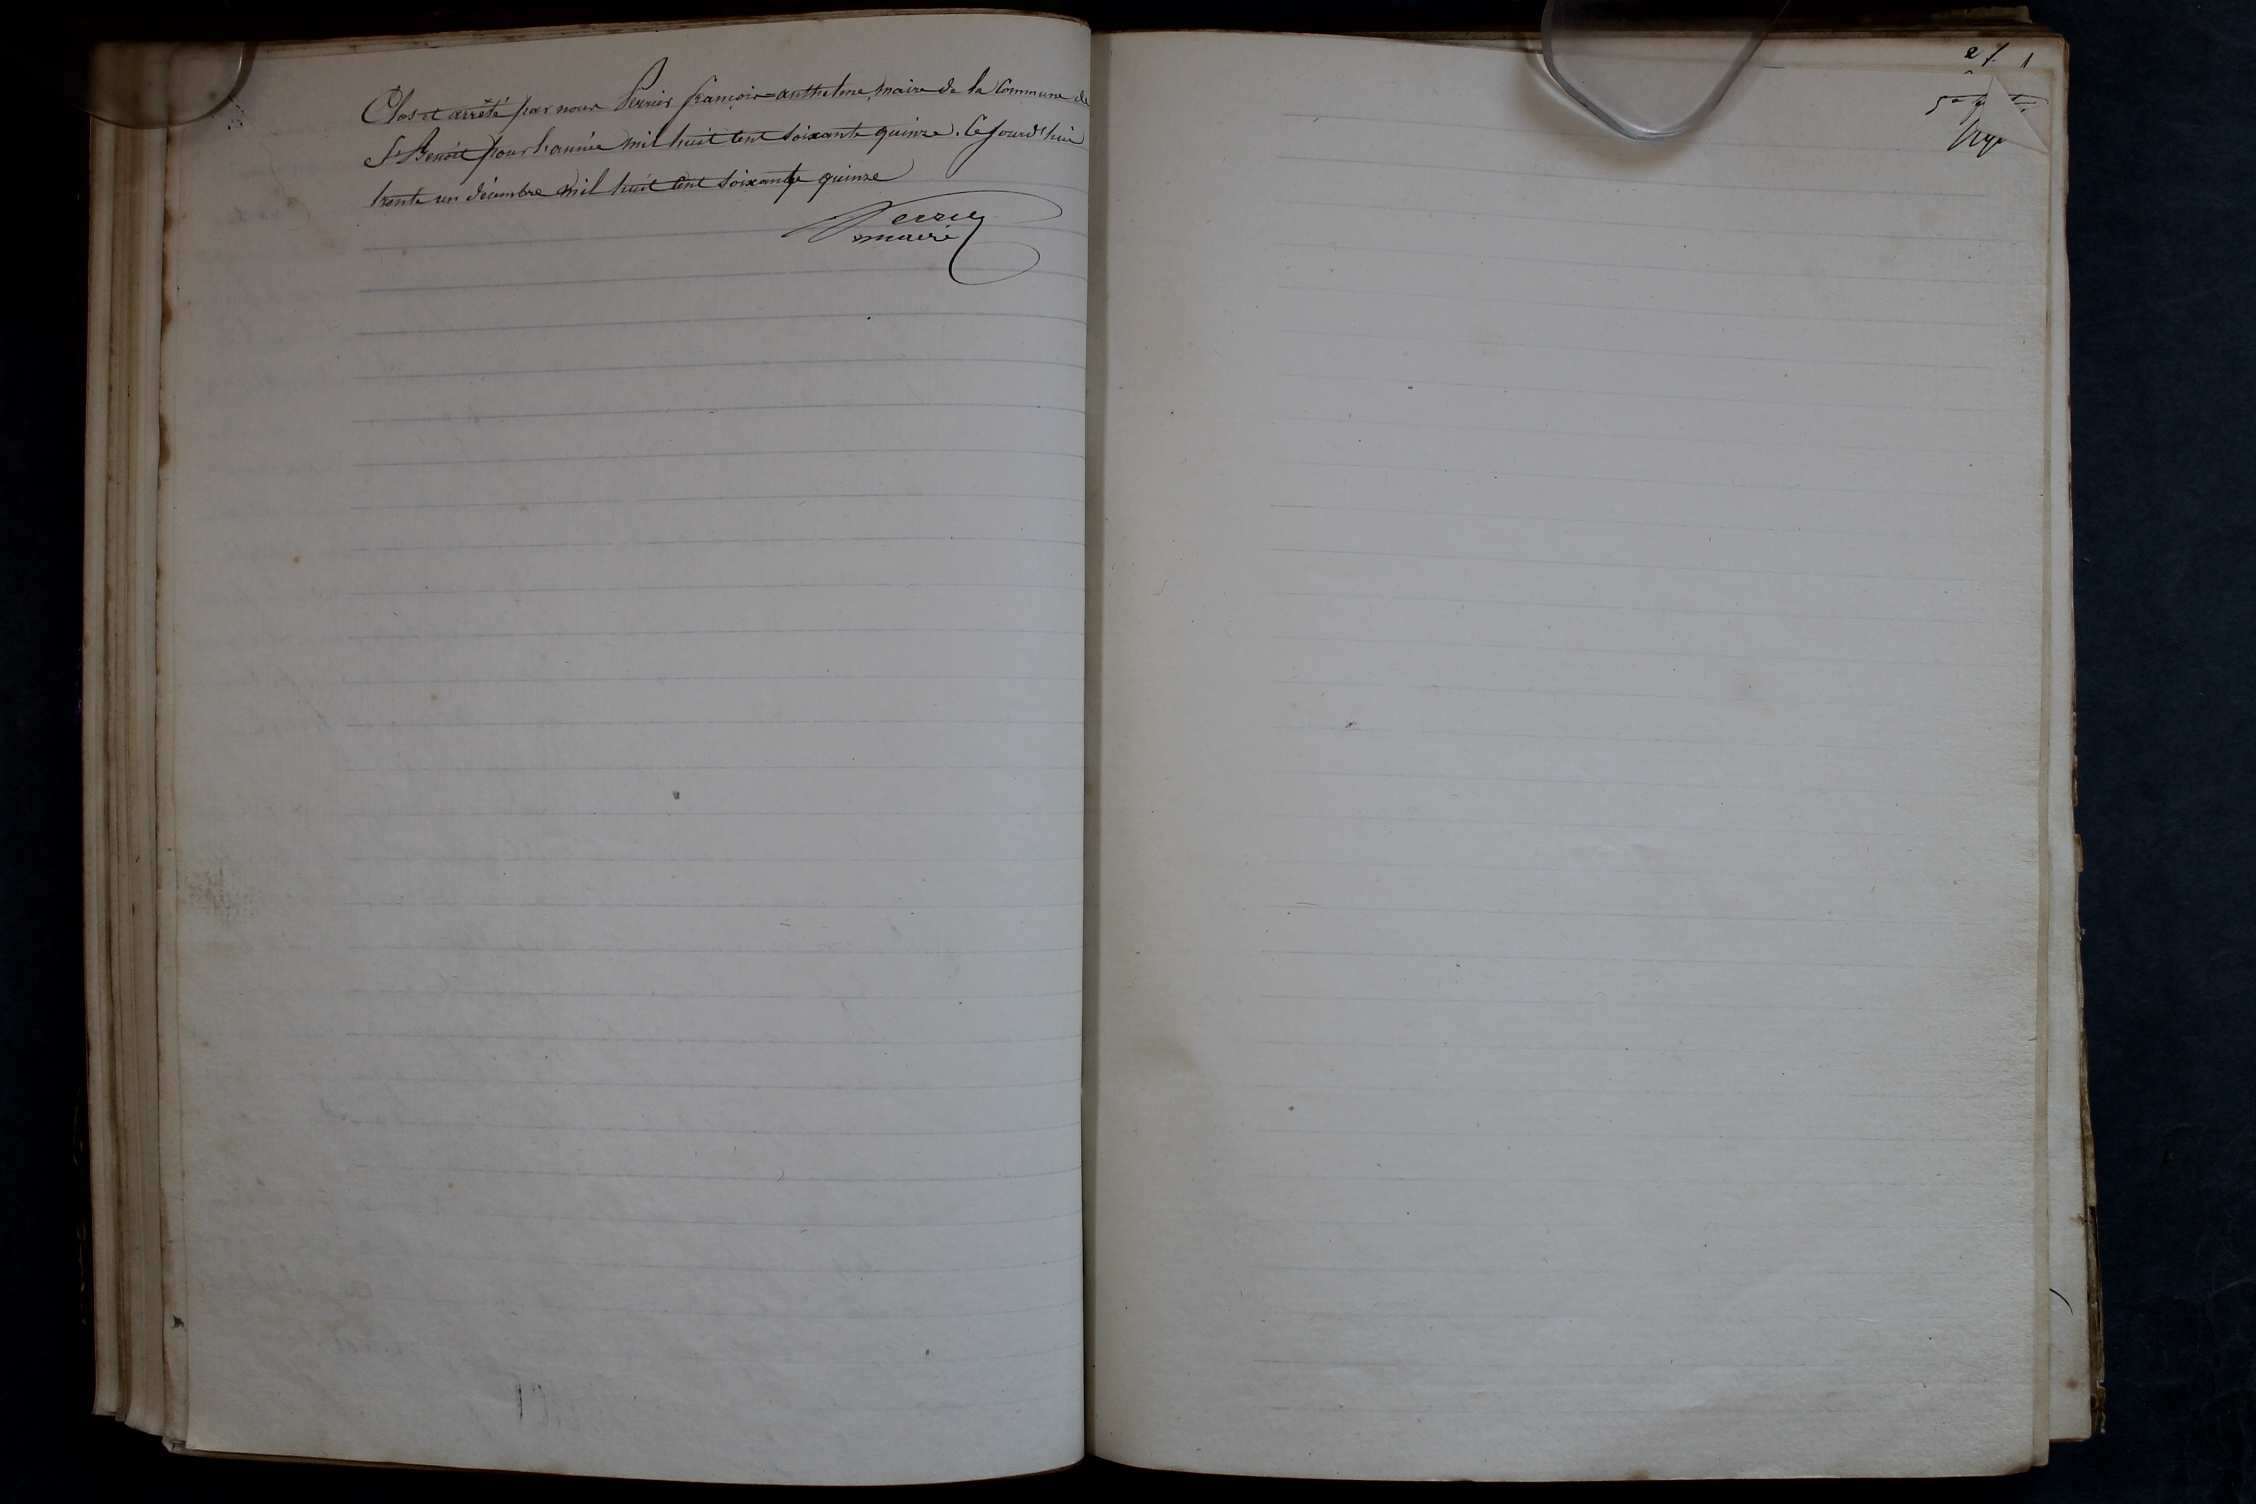 Clos et arrêté par nous Perrier françois=anthelme, maire de la Commune de
St Benoit pour l'année mil huit cent soixante quinze. Ce jourd'hui
trente un décembre mil huit cent soixante quinze
Perrier
maire